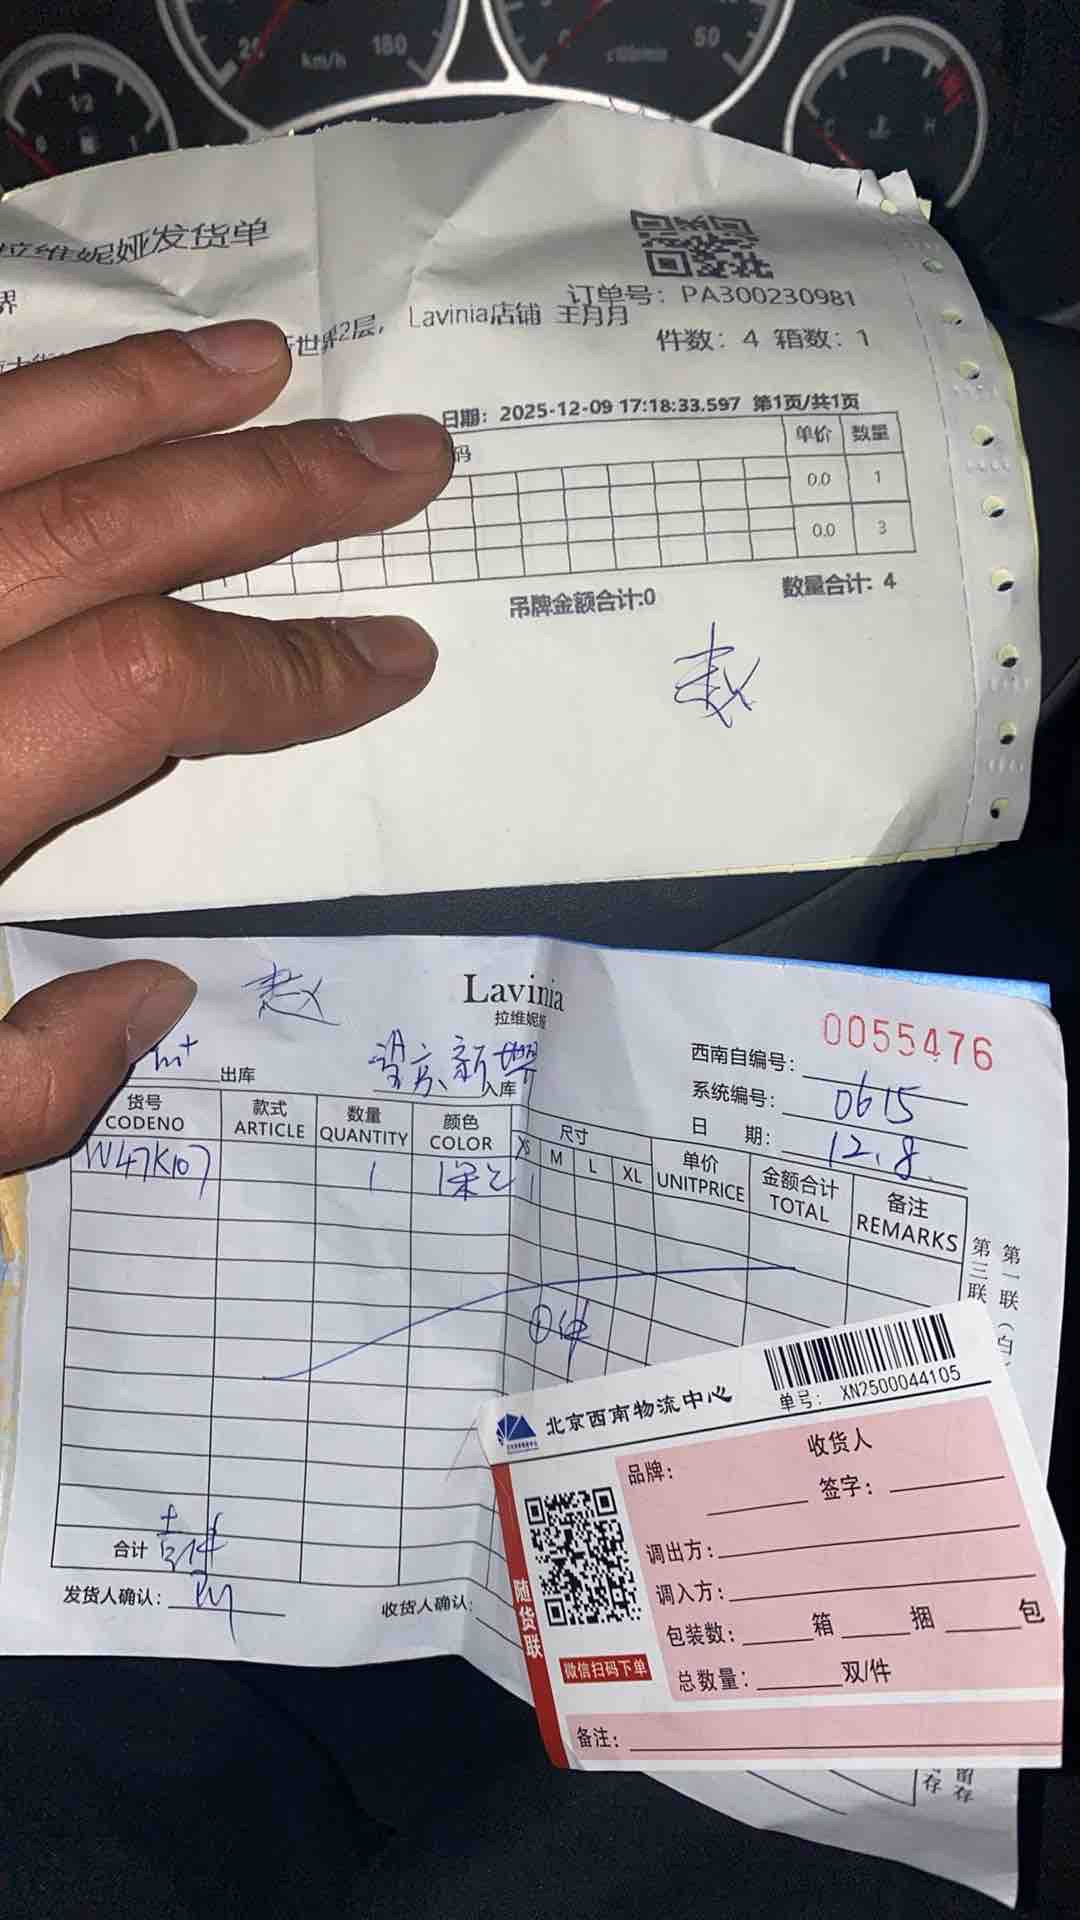 拉维妮娅发货单
界
订单号：PA300230981
世界2层， Lavinia店铺 王月月
件数：4 箱数：1
日期：2025-12-09 17:18:33.597 第1页/共1页
码 单价 数量
0.0 1
0.0 3
吊牌金额合计:0 数量合计: 4
赵
赵
Lavinia
拉维妮娅
0055476
出库 望京新世界 入库
西南自编号：
系统编号： 0615
日 期： 12.8
货号 款式 数量 颜色 尺寸 单价 金额合计 备注
CODENO ARTICLE QUANTITY COLOR XS M L XL UNITPRICE TOTAL REMARKS
W47K107 1 1
第一联（白
第三联
合计 壹件
发货人确认：
收货人确认：
存
留存
北京西南物流中心
单号： XN2500044105
收货人
品牌： 签字：
调出方：
调入方：
包装数： 箱 捆 包
总数量： 双/件
备注：
随货联
微信扫码下单
20 km/h 180
50
1/2
0 1
C H